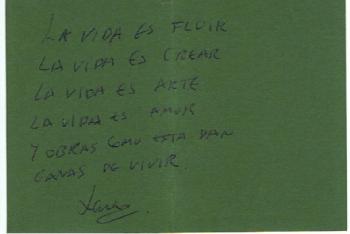 LA VIDA ES FLUIR
LA VIDA ES CREAR
LA VIDA ES ARTE
LA VIDA ES AMOR
Y OBRAS COMO ESTA DAN
GANAS DE VIVIR.